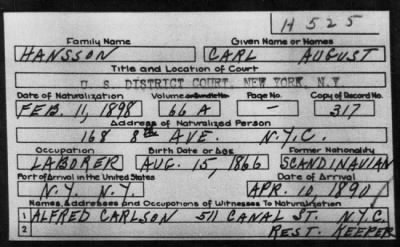 H 525
Family Name Given Name or Names
HANSSON CARL AUGUST
Title and Location of Court
U. S. DISTRICT COURT, NEW YORK, N.Y.
Date of Naturalization Volume or Bundle No. Page No. Copy of Record No.
FEB. 11, 1898 66 A — 317
Address of Naturalized Person
168 8th AVE. N.Y.C.
Occupation Birth Date or Age Former Nationality
LABORER AUG. 15, 1866 SCANDINAVIAN
Port of Arrival in the United States Date of Arrival
N.Y. N.Y. APR. 10, 1890
Names, Addresses and Occupations of Witnesses To Naturalization
1 ALFRED CARLSON 511 CANAL ST. N.Y.C.
2 REST. KEEPER